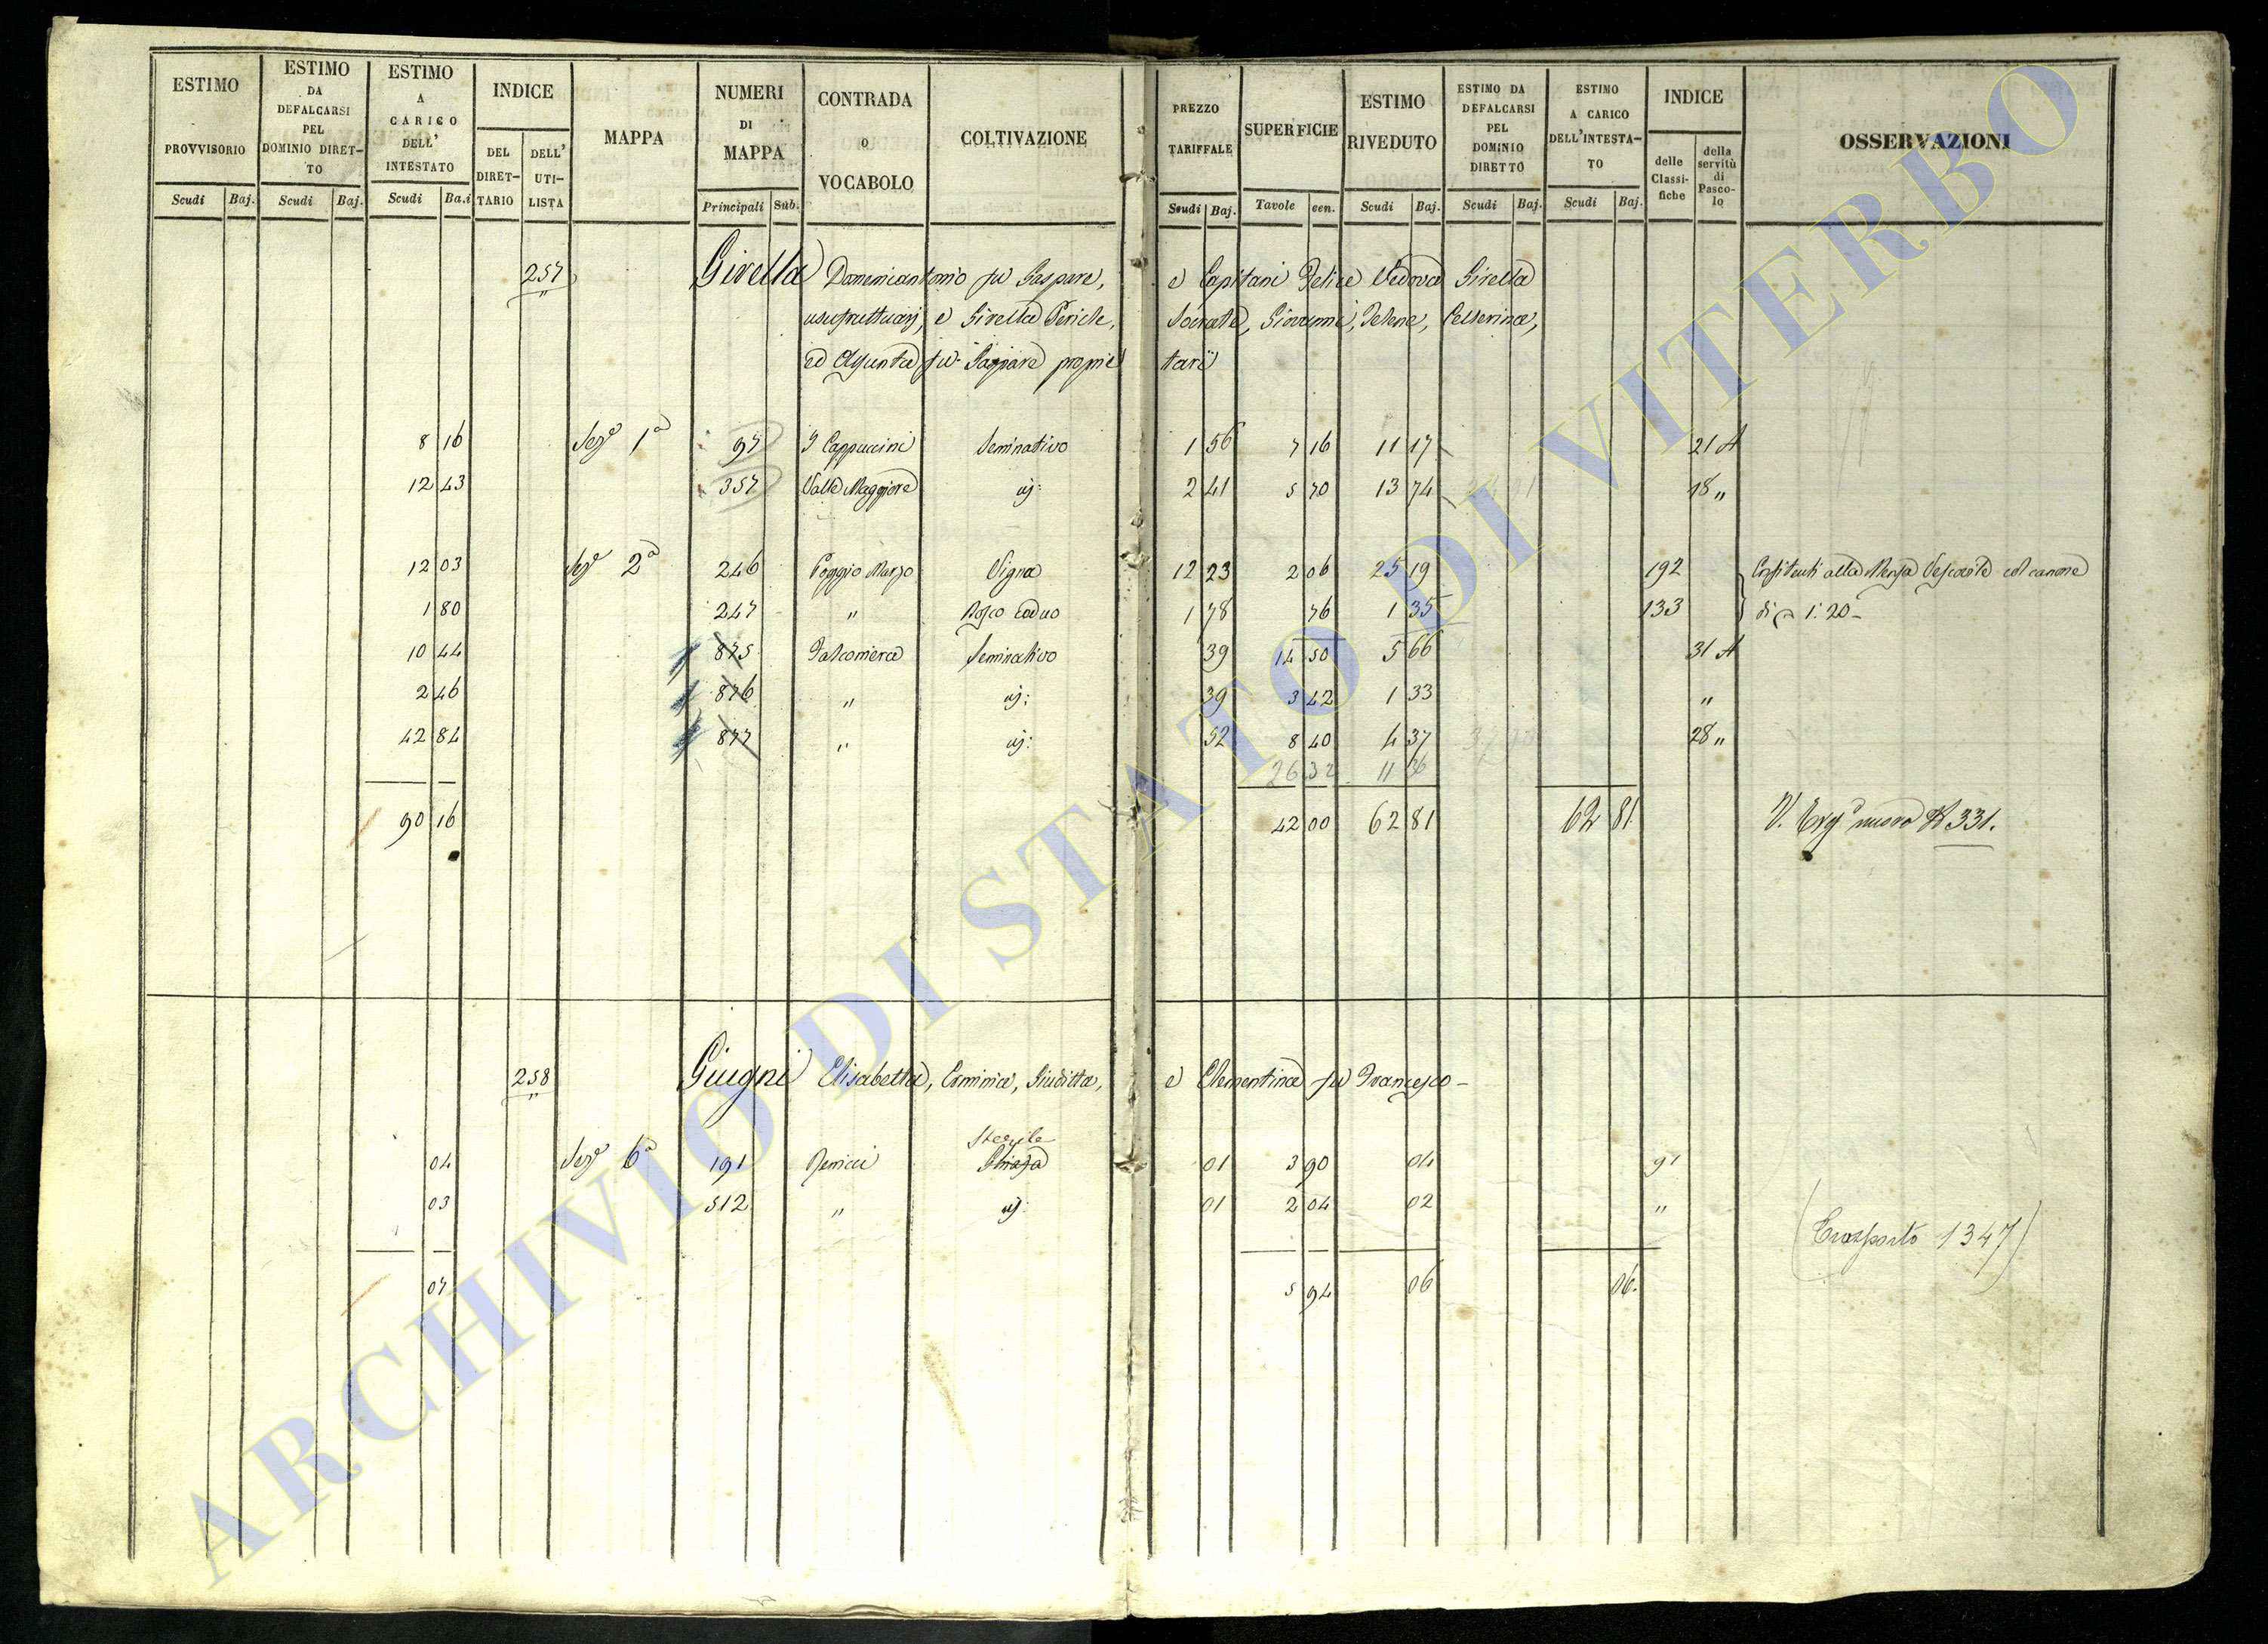 ESTIMO PROVVISORIO
Scudi Baj.
ESTIMO DA DEFALCARSI PEL DOMINIO DIRET-TO
Scudi Baj.
ESTIMO A CARICO DELL' INTESTATO
Scudi Ba.i
INDICE
DEL DIRET-TARIO
DELL' UTI-LISTA
MAPPA
NUMERI DI MAPPA
Principali Sub.
CONTRADA O VOCABOLO
COLTIVAZIONE
PREZZO TARIFFALE
Scudi Baj.
SUPERFICIE
Tavole cen.
ESTIMO RIVEDUTO
Scudi Baj.
ESTIMO DA DEFALCARSI PEL DOMINIO DIRETTO
Scudi Baj.
ESTIMO A CARICO DELL'INTESTA-TO
Scudi Baj.
INDICE
delle Classi-fiche
della servitù di Pasco-lo
OSSERVAZIONI
257 Girella Domenicantonio fu Gaspare, e Capitani Felice Vedova Girella
usufruttuarj, e Girella Pericle, Socrate, Giovanni, Celserina,
ed Assunta fu Gaspare proprietarii
8 16 Sez.e 1a 97 I Cappuccini Seminativo 1 56 7 16 11 17 21 A
12 43 357 Valle Maggiore id: 2 41 5 70 13 74 18 "
12 03 Sez.e 2a 246 Poggio Marzo Vigna 12 23 2 06 25 19 192 Corrisponti alla Mensa Vescovile col canone
1 80 247 " Bosco Ceduo 1 78 76 1 35 133 di 1:20
10 44 875 Falconiera Seminativo 39 14 50 5 66 31 A
2 46 876 " id: 39 3 42 1 33 "
42 84 877 " id: 52 8 40 4 37 28 "
26 32 11 36
90 16 42 00 62 81 62 81 V. Reg.o nuovo N 331.
258 Giugni Elisabetta, Erminia, Giuditta, e Clementina fu Francesco
Sterile
04 Sez.e 6a 191 01 3 90 04 91
03 512 " id: 01 2 04 02 "
(Trasporto 1347)
07 5 94 06 06.
ARCHIVIO DI STATO DI VITERBO